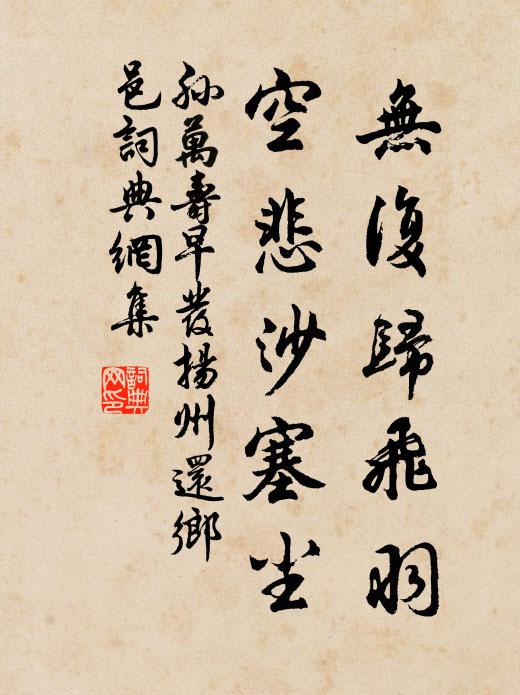 無復歸飛羽
空悲沙塞尘
孫萬壽早發揚州還鄉
邑詞典網集
詞典
网印